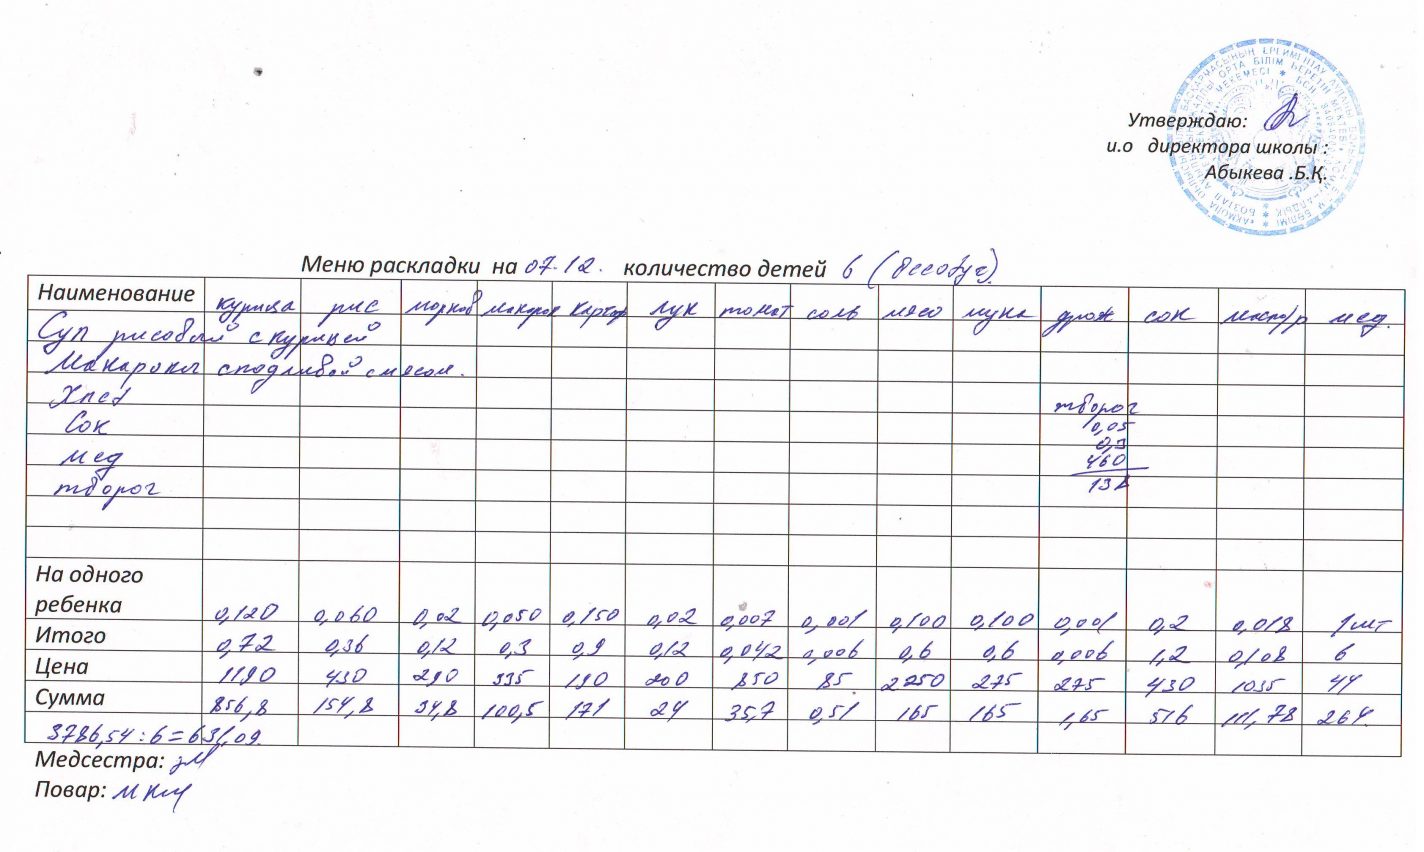 Утверждаю:
и.о директора школы :
Абыкева .Б.Қ.
Меню раскладки на 07.12. количество детей 6 (Всеобуч)
Наименование курица рис морков макарон картоф лук томат соль мясо мука дрож сок масло/р мед.
Суп рисовый с курицей
Макароны с подливой с мясом.
Хлеб
творог
Сок 0,05
0,3
мед 460
творог 138
На одного
ребенка 0,120 0,060 0,02 0,050 0,150 0,02 0,007 0,001 0,100 0,100 0,001 0,2 0,018 1шт
Итого 0,72 0,36 0,12 0,3 0,9 0,12 0,042 0,006 0,6 0,6 0,006 1,2 0,108 6
Цена 1190 430 290 335 190 200 850 85 2250 275 275 430 1035 44
Сумма 856,8 154,8 34,8 100,5 171 24 35,7 0,51 165 165 1,65 516 111,78 264.
3786,54 : 6 = 631,09.
Медсестра:
Повар: